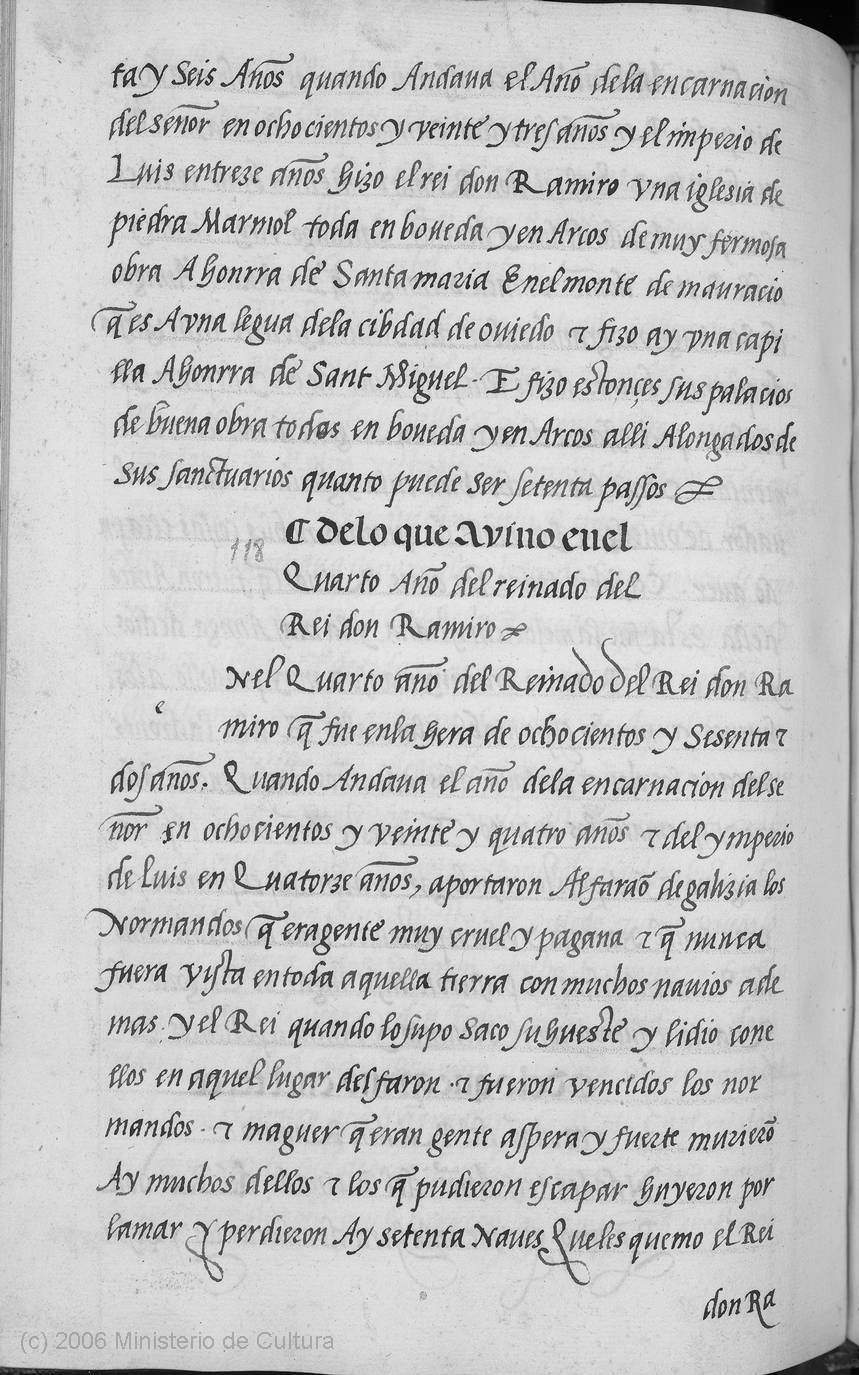 ta y Seis Años quando Andaua el Año dela encarnacion
del señor en ochocientos y veinte y tres años y el imperio de
Luis entreze años hizo el rei don Ramiro vna iglesia de
piedra Marmol toda en boueda y en Arcos de muy fermosa
obra A honrra de Santa maria Enel monte de mauracio
q̃ es A vna legua dela cibdad de oviedo ⁊ fizo ay vna capi
lla A honrra de Sant Miguel. E fizo estonçes sus palacios
de buena obra todos en boueda y en Arcos alli Alongados de
sus sanctuarios quanto puede ser setenta passos
118
C delo que Avino enel
Quarto Año del reinado del
Rei don Ramiro
e
Nel Quarto año del Reinado del Rei don Ra
miro q̃ fue enla hera de ochocientos y Sesenta ⁊
dos años. Quando Andaua el año dela encarnacion del se
ñor en ochocientos y veinte y quatro años ⁊ del ymperio
de luis en Quatorze años, aportaron Alfaraõ de galizia los
Normandos q̃ era gente muy cruel y pagana ⁊ q̃ nunca
fuera vista en toda aquella tierra con muchos nauios ade
mas. y el Rei quando lo supo Saco su hueste y lidio cone
llos en aquel lugar del faron. ⁊ fueron vencidos los nor
mandos. ⁊ maguer q̃ eran gente aspera y fuerte murierõ
Ay muchos dellos ⁊ los q̃ pudieron escapar huyeron por
la mar y perdieron Ay setenta Naues Queles quemo el Rei
don Ra
(c) 2006 Ministerio de Cultura